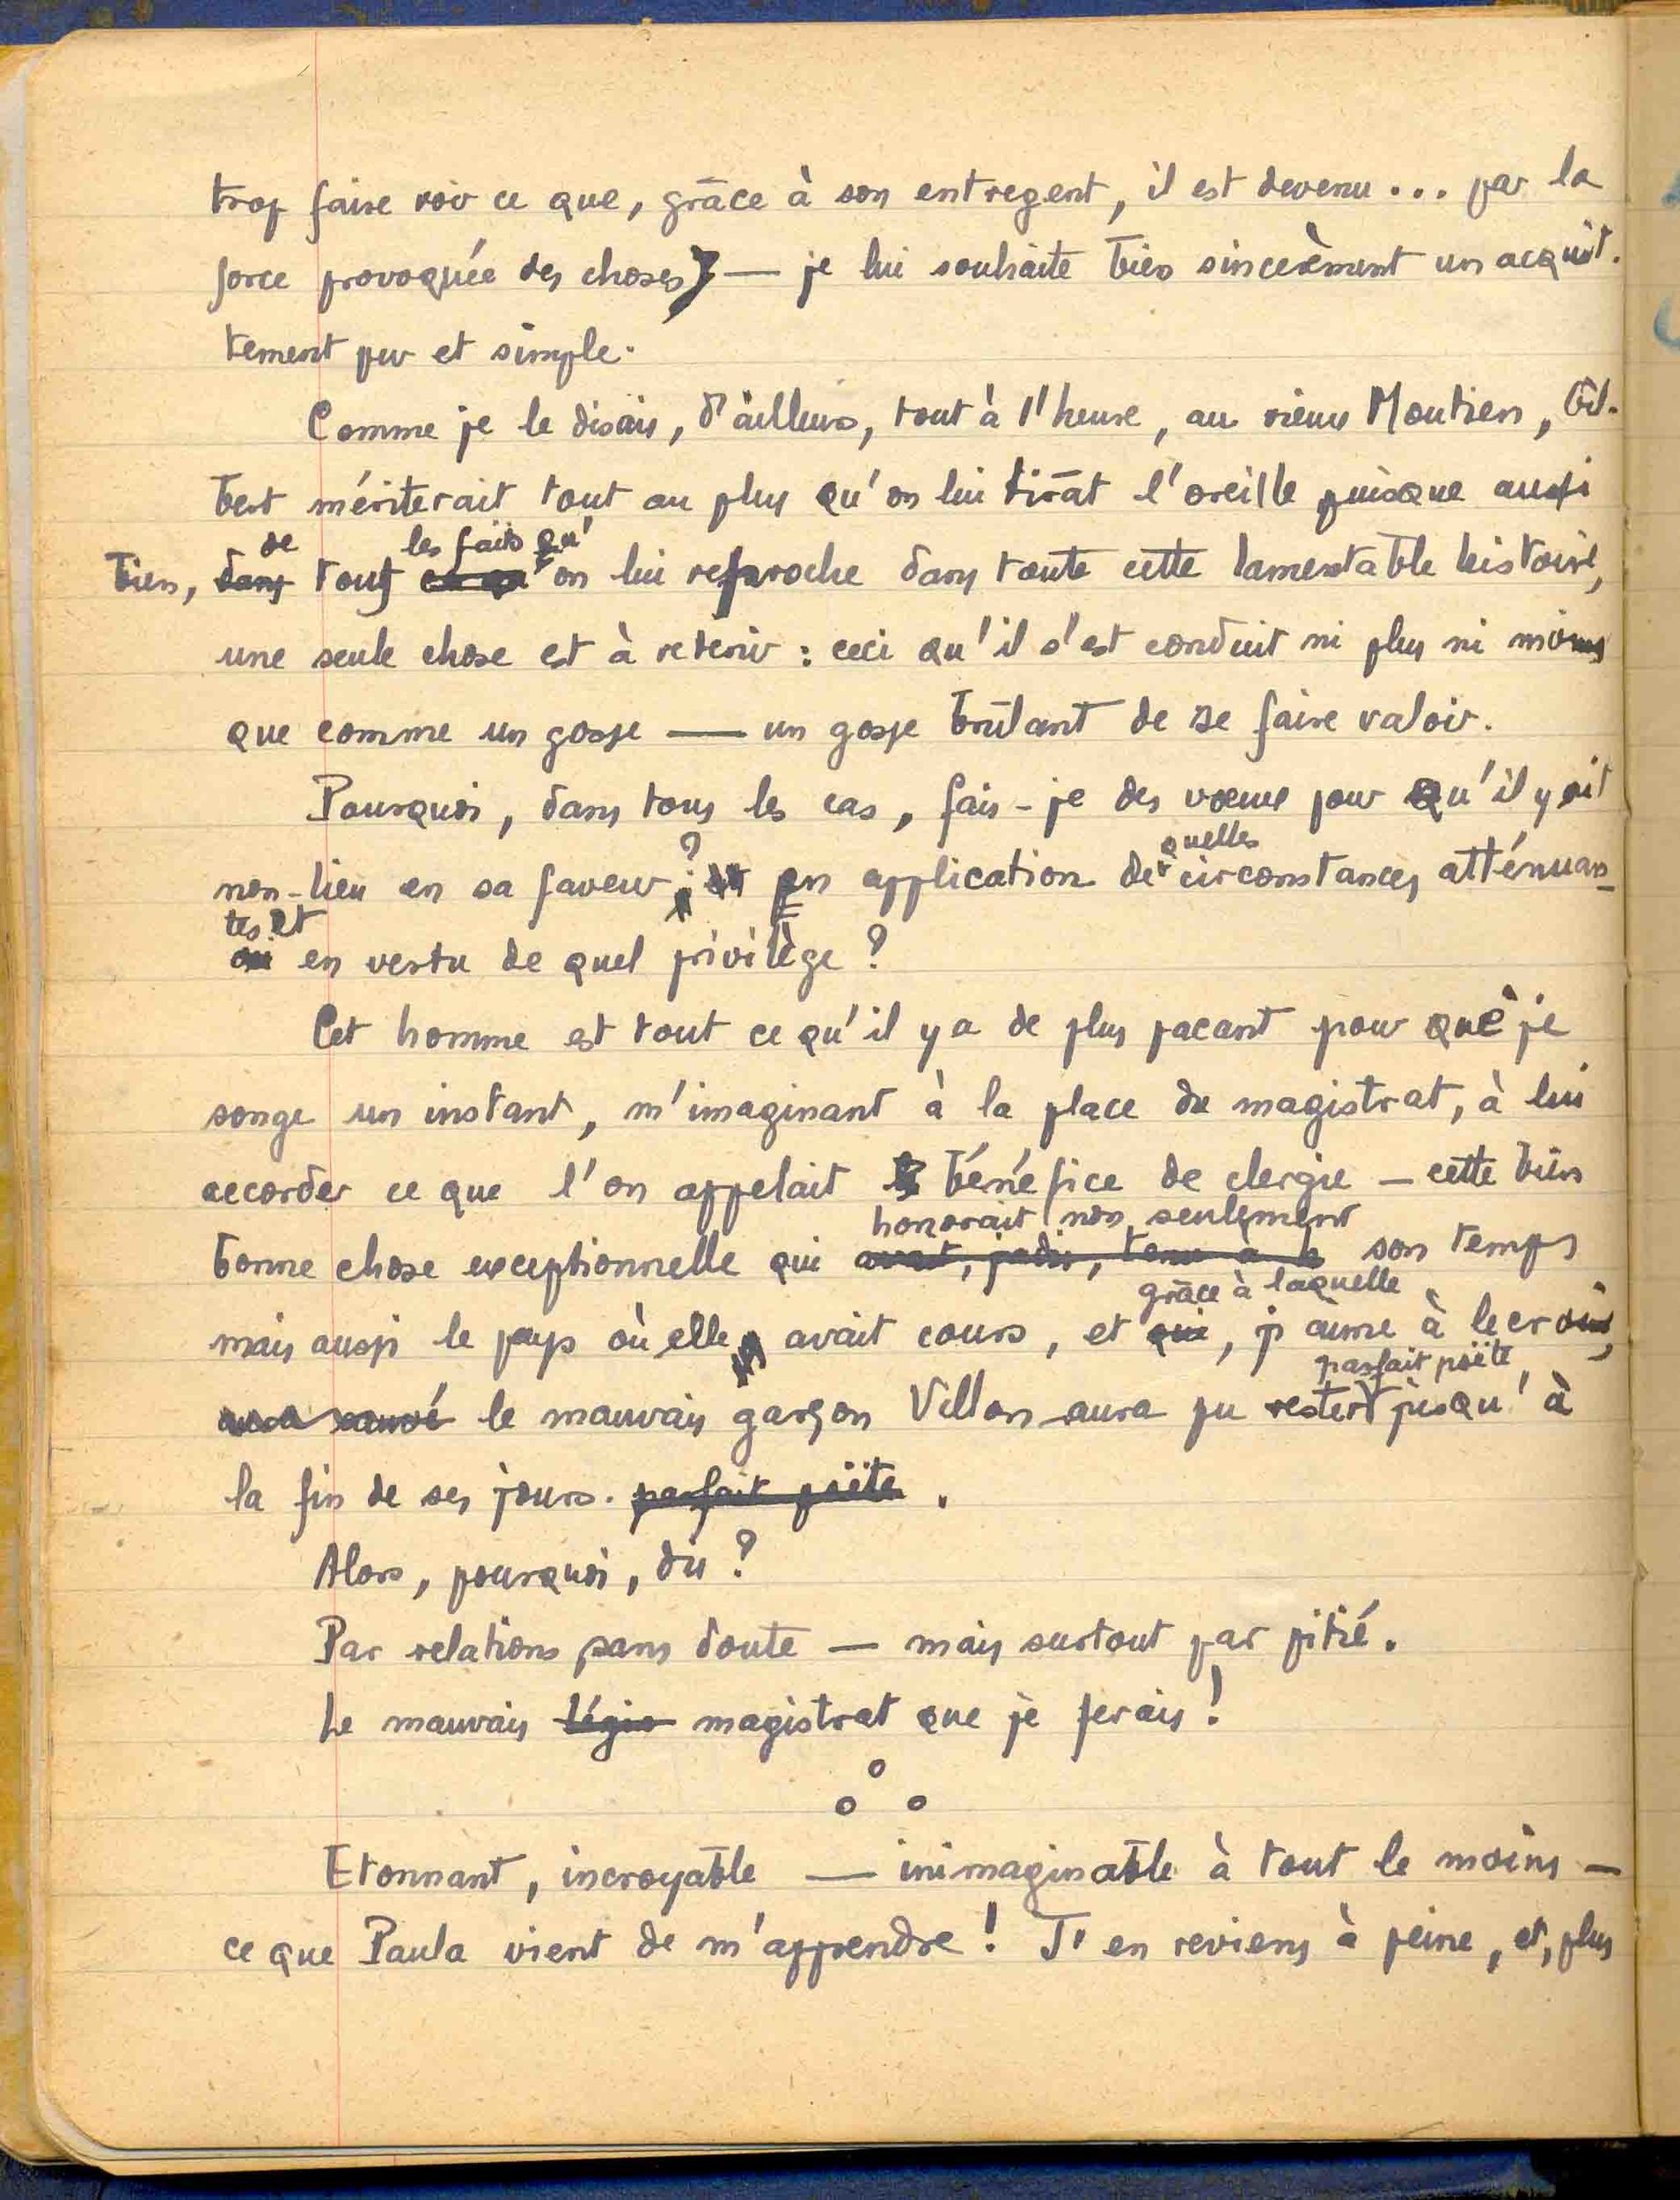 trop faire voir ce que, grâce à son entregent, il est devenu... par la
force provoquée des choses) — je lui souhaite bien sincèrement un acquit-
tement pur et simple.
Comme je le disais, d'ailleurs, tout à l'heure, au vieux Moutien, Gil-
bert mériterait tout au plus qu'on lui tirât l'oreille puisque aussi
de les faits qu'
bien, dans tous ce qu'on lui reproche dans toute cette lamentable histoire,
une seule chose est à retenir : ceci qu'il s'est conduit ni plus ni moins
que comme un gosse — un gosse brûlant de se faire valoir.
Pourquoi, dans tous les cas, fais-je des vœux pour qu'il y ait
? quelles
non-lieu en sa faveur ; et en application de circonstances atténuan-
tes et
ou en vertu de quel privilège ?
Cet homme est tout ce qu'il y a de plus pacant pour que je
songe un instant, m'imaginant à la place du magistrat, à lui
accorder ce que l'on appelait le bénéfice de clergie — cette bien
honorait non seulement
bonne chose exceptionnelle qui avait, jadis, tenu à le son temps
grâce à laquelle
mais aussi le pays où elle avait cours, et qui, j'aime à le croire,
parfait poëte
aura sauvé le mauvais garçon Villon aura pu rester jusqu'à
la fin de ses jours. parfait poëte.
Alors, pourquoi, dis ?
Par relations sans doute — mais surtout par pitié.
Le mauvais légis magistrat que je ferais !
Etonnant, incroyable — inimaginable à tout le moins —
ce que Paula vient de m'apprendre ! J'en reviens à peine, et, plus